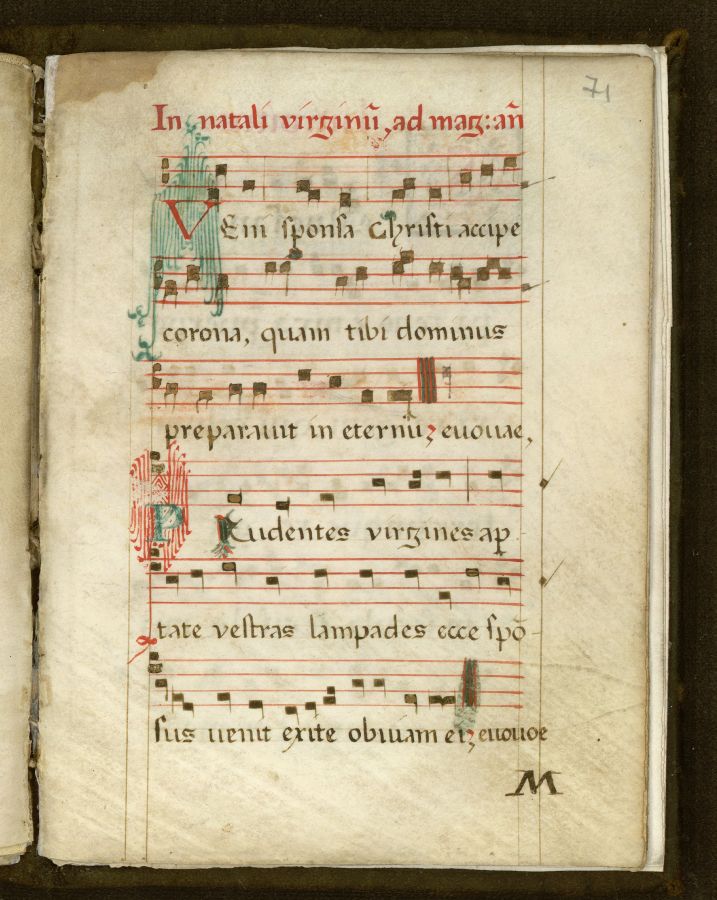 71
In natali virginũ, ad mag: añ
VEni sponsa Christi accipe
corona, quam tibi dominus
preparauit in eternũ z euouae,
PRudentes virgines ap
tate vestras lampades ecce spõ-
sus uenit exite obuiam ei z euouoe
M